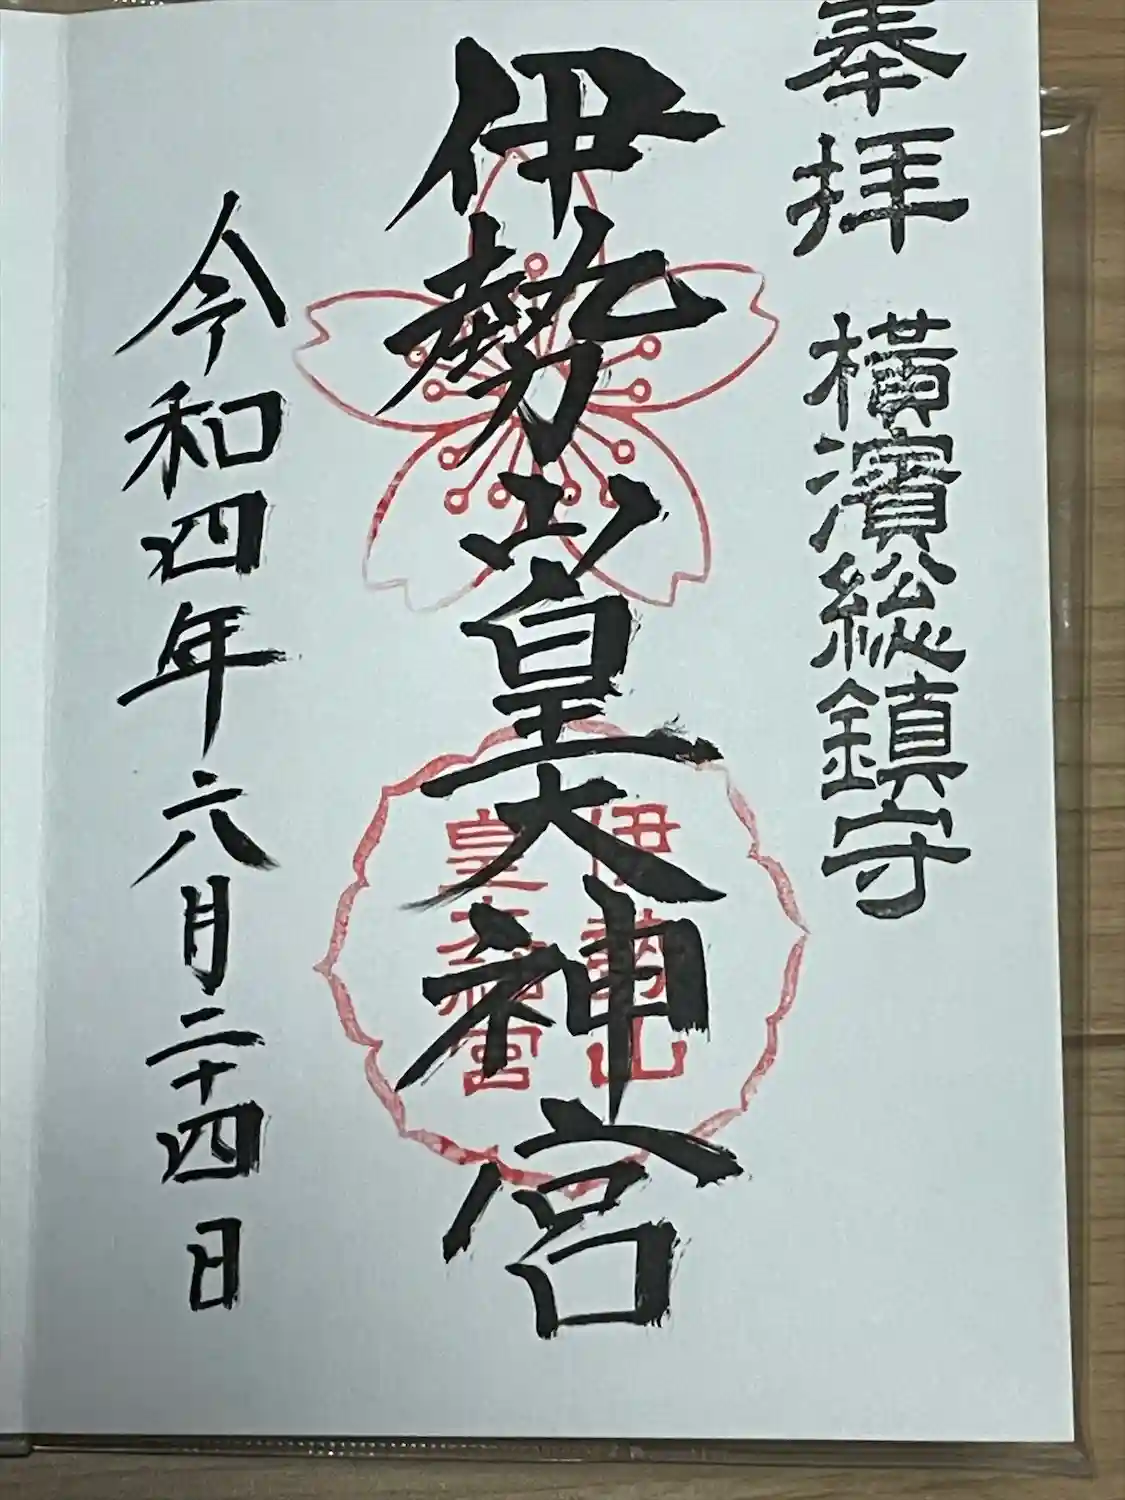 奉拝 横濱総鎮守
伊勢山皇大神宮
伊勢山
皇大神宮
令和四年六月二十四日